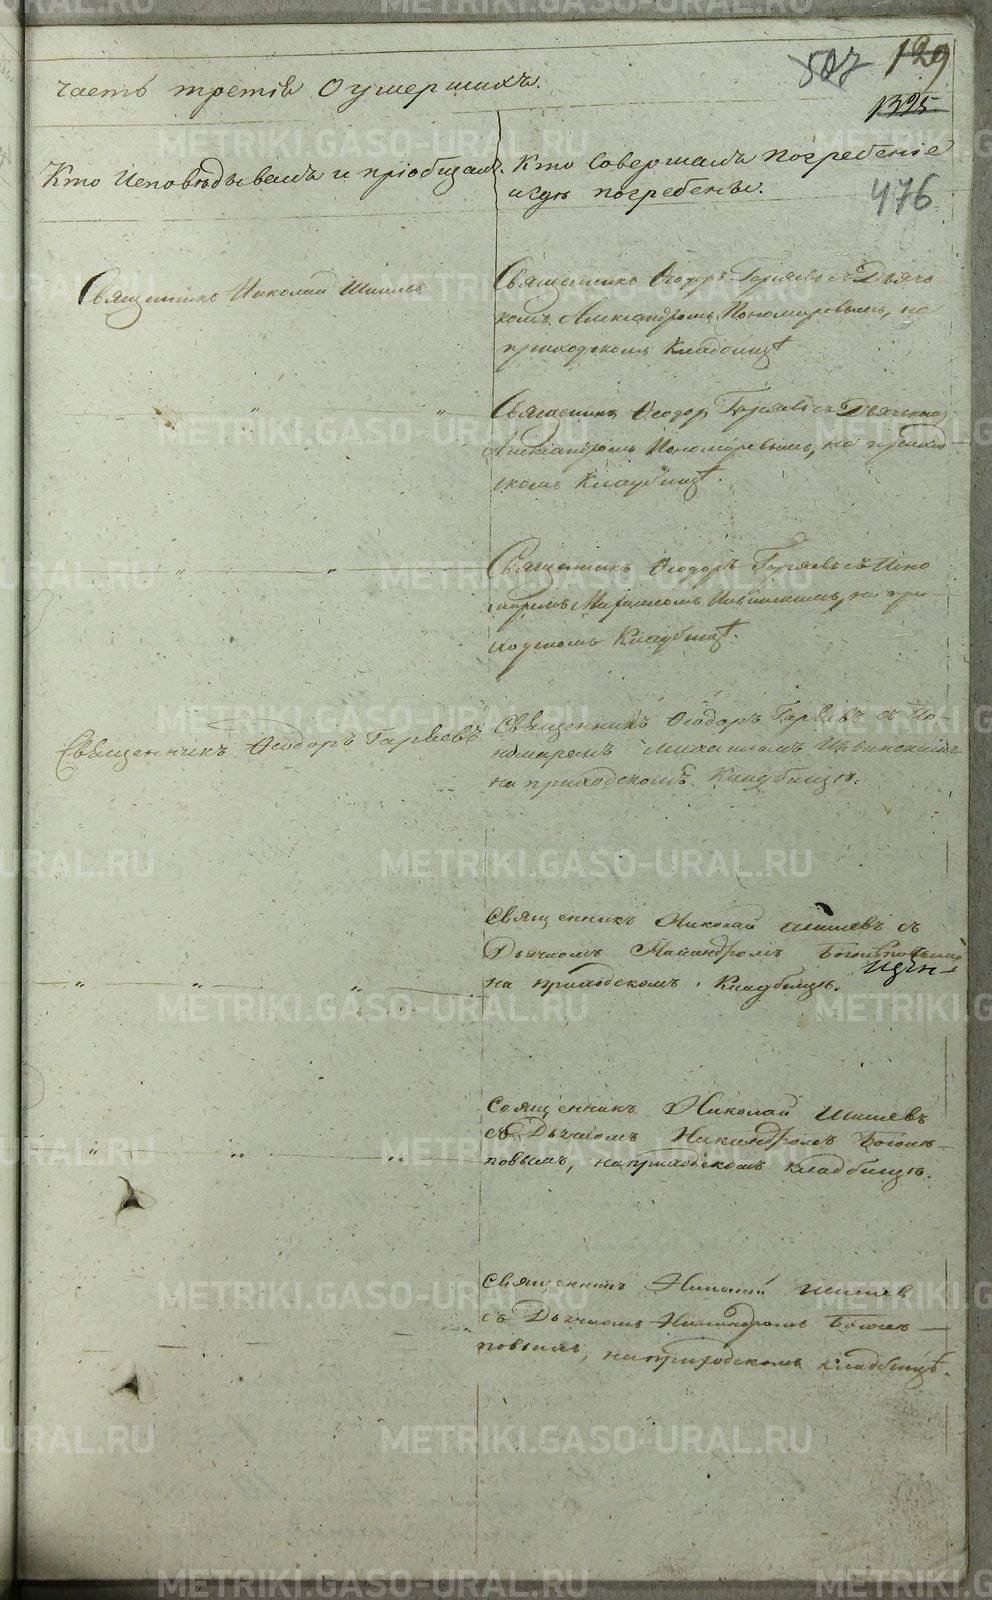 507 129
1395
476
часть третія Оумершихъ.
Кто Исповѣдывалъ и пріобщалъ.
Кто Совершалъ Погребеніе
и гдѣ погребены.
Священникъ Николай Шишевъ
Священникъ Ѳеодоръ Гаряевъ съ Дьяч
комъ Александромъ Пономаревымъ, на
приходскомъ Кладбищѣ
Священникъ Ѳеодоръ Гаряевъ съ Дьячкомъ
Александромъ Пономаревымъ, на приход
скомъ Кладбищѣ.
Священникъ Ѳеодоръ Гаряевъ съ Поно
маремъ Михаиломъ на при
ходскомъ Кладбищѣ.
Священникъ Ѳеодоръ Гаряевъ
Священникъ Ѳеодоръ Гаряевъ съ По-
номаремъ Михаиломъ
на приходскомъ Кладбищѣ.
Священникъ Николай Шишевъ съ
Дьячкомъ
на приходскомъ Кладбищѣ.
Священникъ Николай Шишевъ
съ Дьячкомъ Никандромъ Боголѣ-
повымъ, на приходскомъ кладбищѣ.
Священникъ Николай Шишев
съ Дьячкомъ Никандромъ Боголѣ-
повымъ, на приходскомъ кладбищѣ.
METRIKI.GASO-URAL.RU